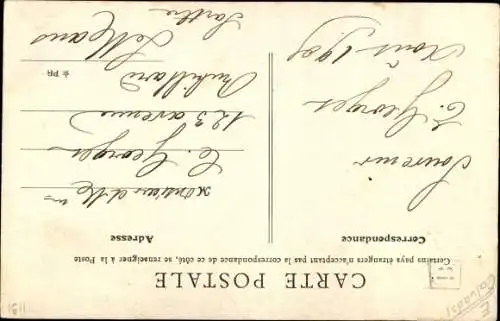 CARTE POSTALE
Certains pays étrangers n'acceptant pas la correspondance de ce côté, se renseigner à la Poste
Correspondance
Adresse
Souvenir
E. Georges
Août 1908
Monsieur et Mme
E. Georges
123 avenue
Le Mans
Sarthe
Calvados